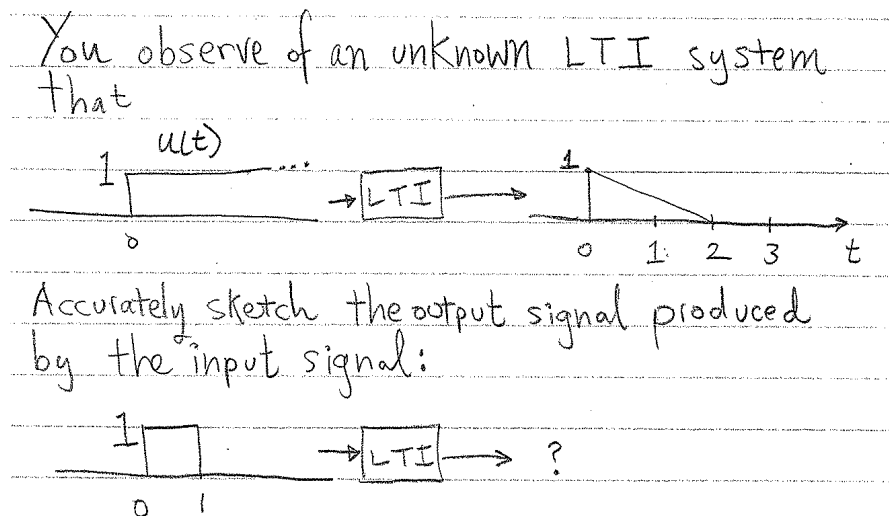 You observe of an unknown LTI system
that
u(t)
1 ... LTI 1
0 0 1 2 3 t
Accurately sketch the output signal produced
by the input signal:
1 LTI ?
0 1